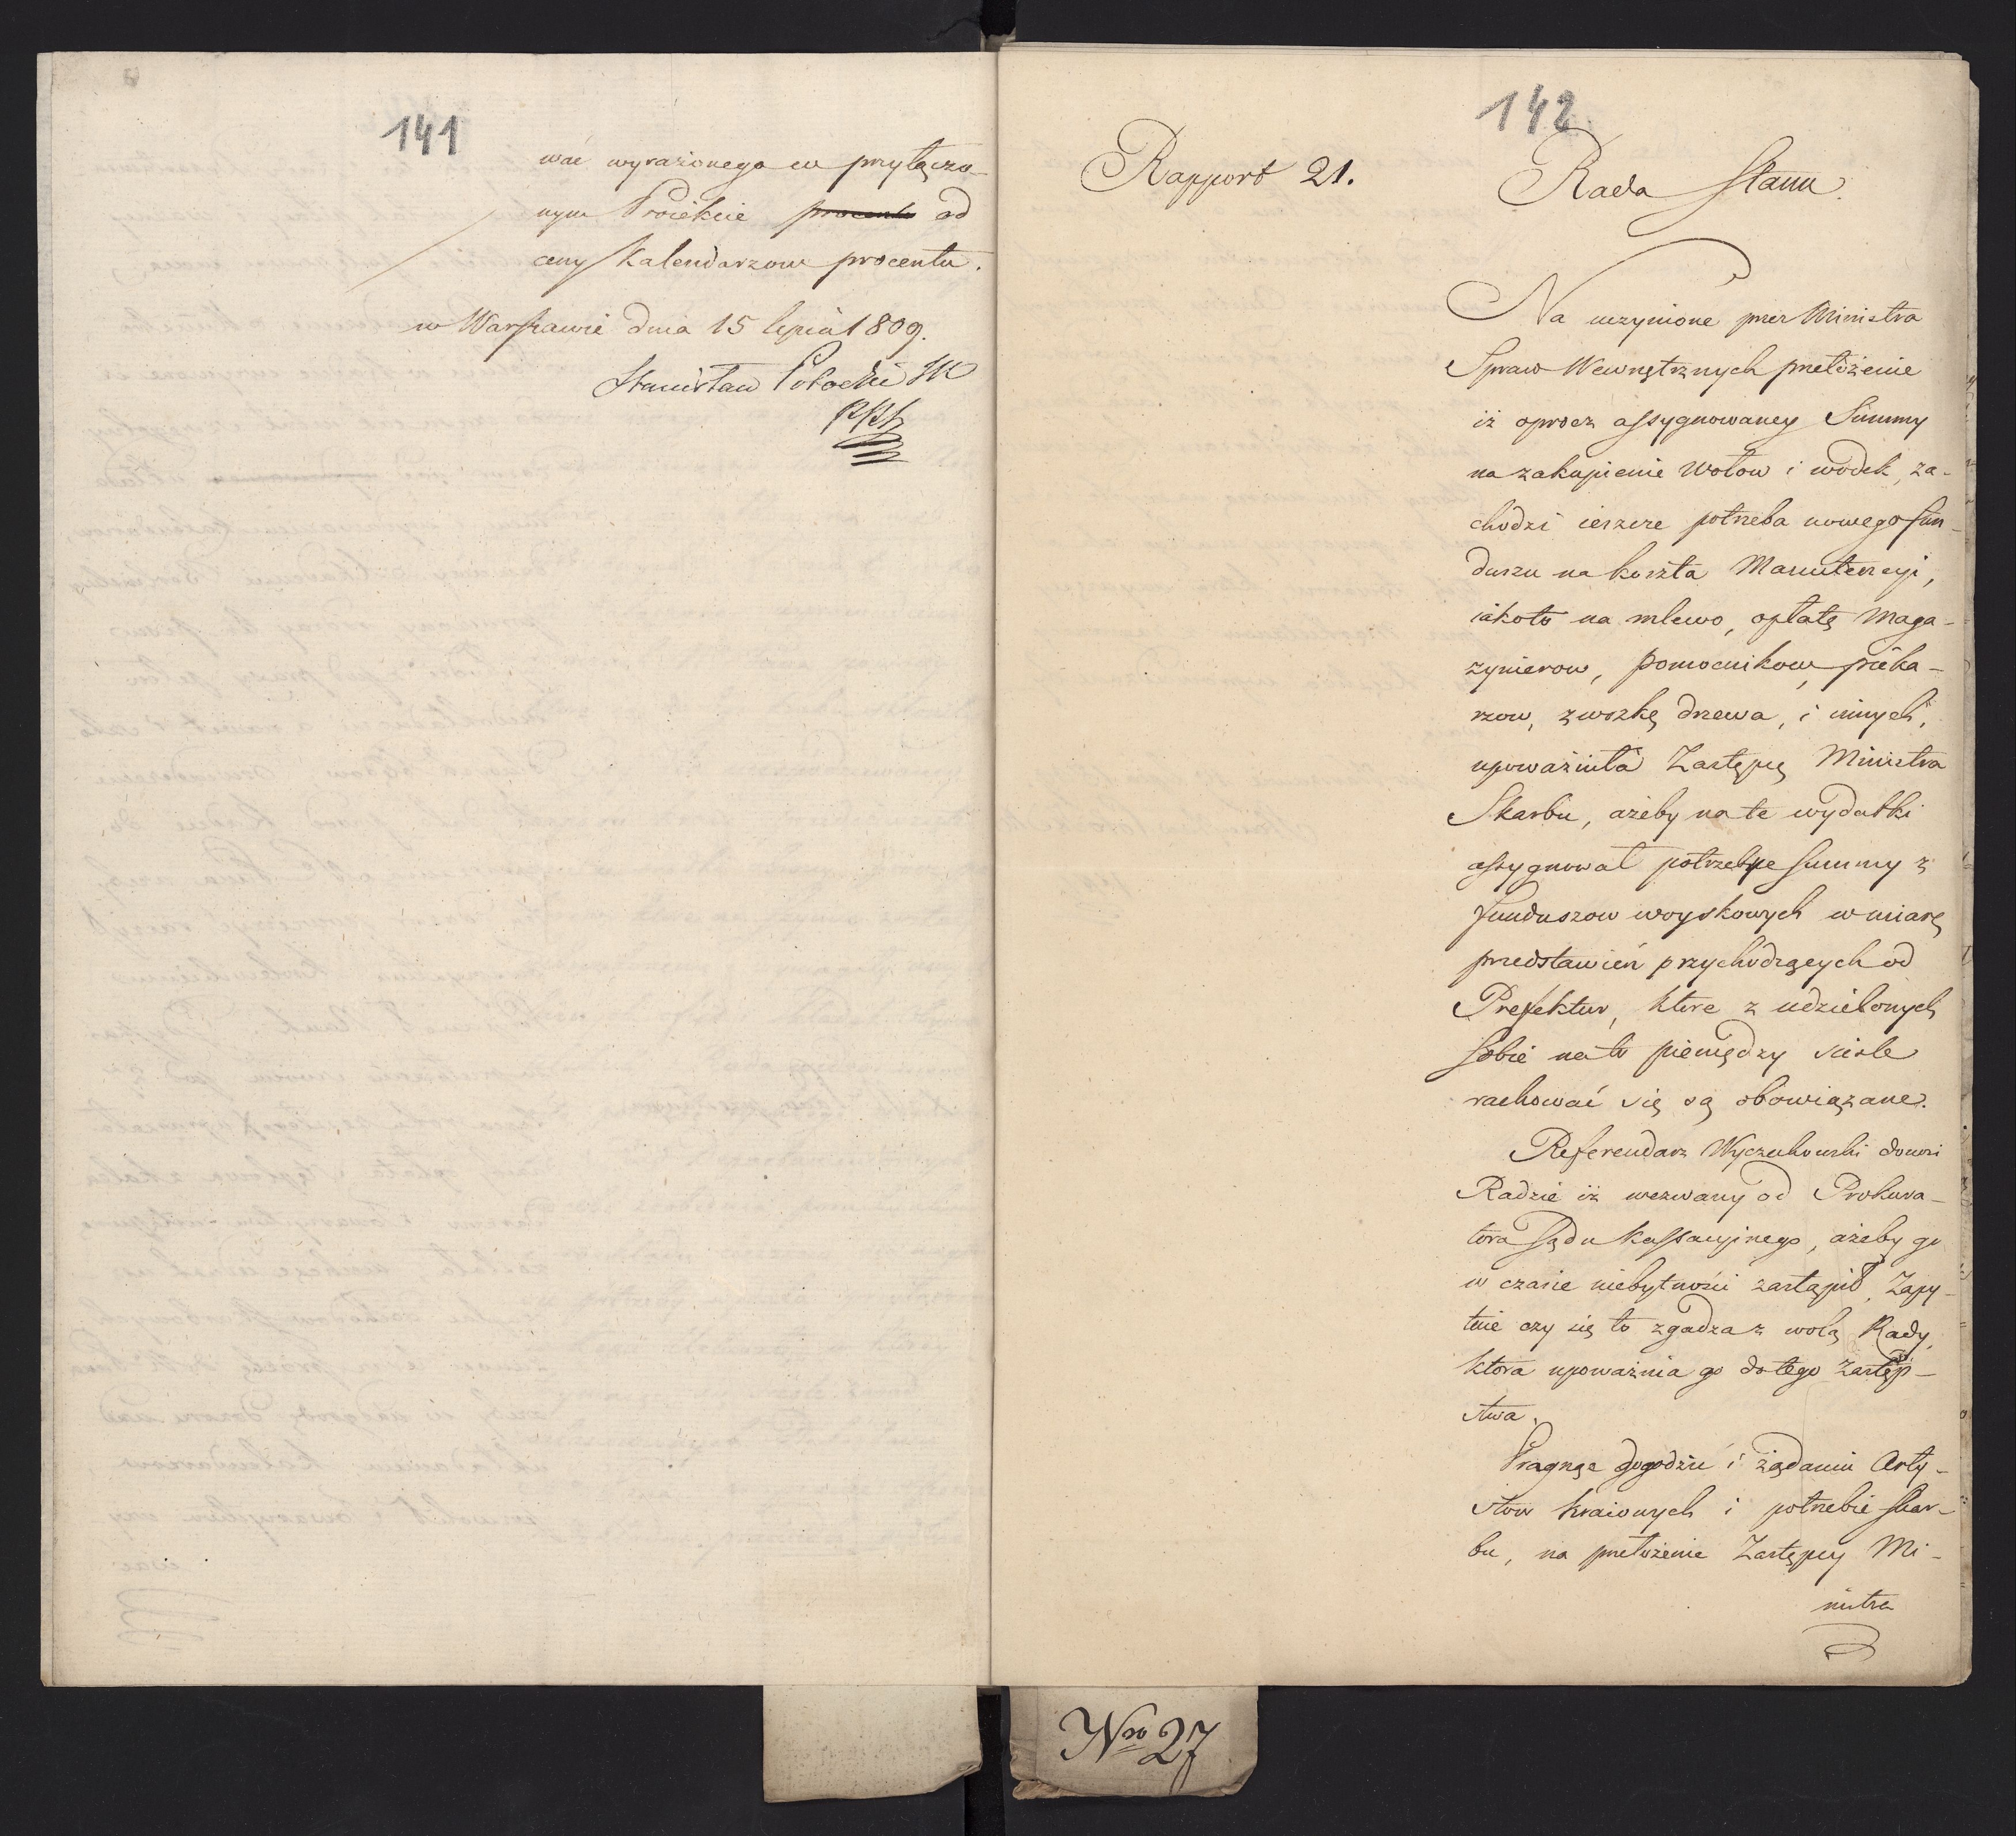 141
wać wyrażonego w przyłączo-
nym Proiekcie procentu od
ceny Kalendarzow procentu.
w Warszawie dnia 15 lipca 1809.
Stanisław Potocki
142
Rapport 21.
Rada Stanu
Na uczynione przez Ministra
Spraw Wewnętrznych przełożenie
iż oprocz assygnowaney Summy
na zakupienie Wołow i wodek, za-
chodzi ieszcze potrzeba nowego fun-
duszu na koszta Manutencyi,
iakoto na mlewo, opłatę Maga-
zynierow, pomocnikow, pieka-
rzow, zwozkę drzewa, i innych,
upoważniła Zastępcę Ministra
Skarbu, ażeby na te wydatki
assygnował potrzebne summy z
funduszow woyskowych w miarę
przedstawień przychodzących od
Prefektur, ktore z udzielonych
sobie na to pieniędzy scisle
rachować się są obowiązane.
Referendarz Wyczechowski donosi
Radzie iż wezwany od Prokura-
tora Sądu Kassacyjnego, ażeby go
w czasie niebytności zastąpił, Zapy-
tuie czy się to zgadza z wolą Rady,
ktora upoważnia go do tego Zastęp-
stwa.
Pragnąc dogodzić i żądaniu Arty-
stow kraiowych i potrzebie skar-
bu, na przełożenie Zastępcy Mi-
nistra
Nro 27